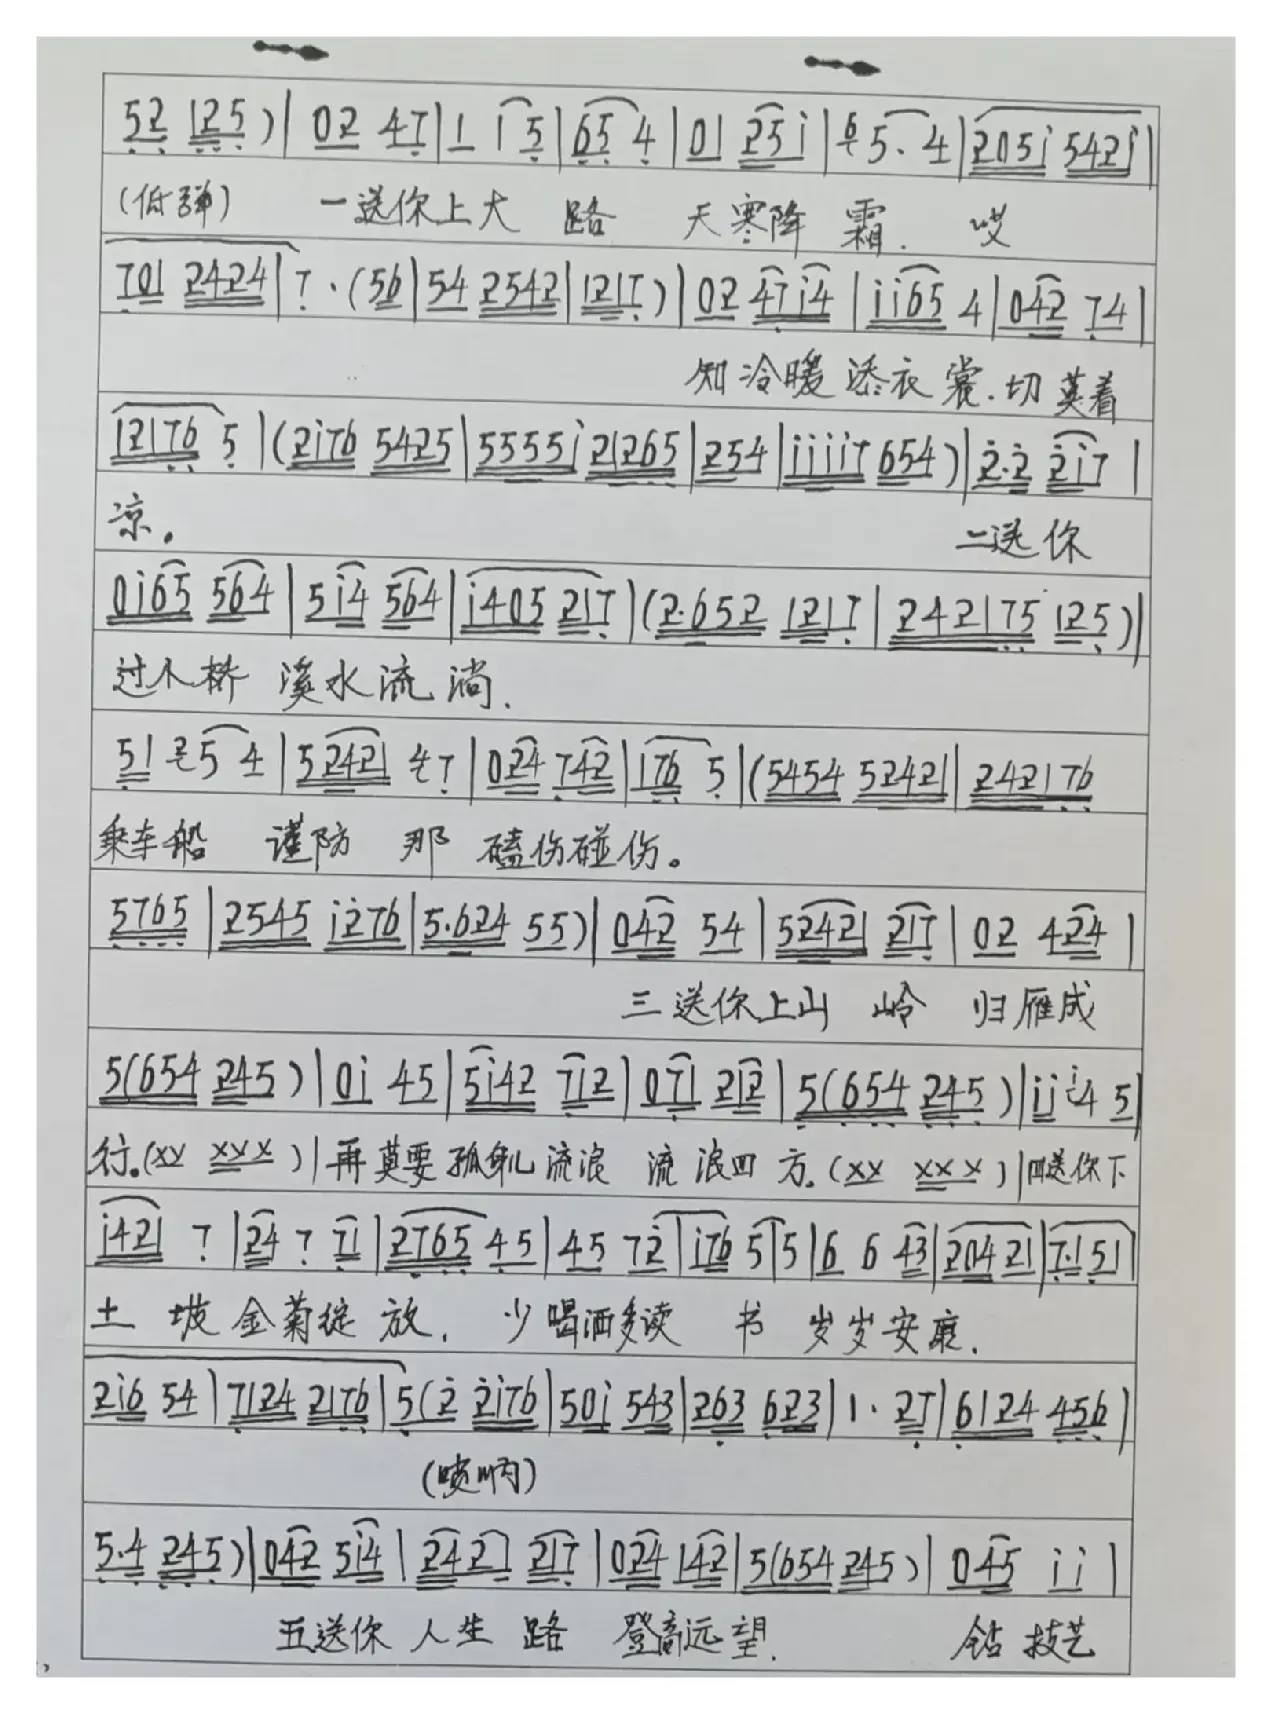 52 125)| 02 47| 1 i 5| 65 4| 01 25i| 65. 4| 205i 542i|
(低弹) 一送你上大 路 天寒降 霜. 哎
701 2424| 7 ·(56| 54 2542| 1217)| 02 47i4| ii65 4| 042 74|
知冷暖添衣裳.切莫着
12176 5|(2i76 5425| 5555i 21265| 254| iiii7 654)| 2·2 2i7|
凉。 二送你
0i65 564| 5i4 564| i405 217|(2·652 1217| 242175 125)|
过小桥 溪水流淌.
51 25 4| 52421 47| 024 742| 176 5|(5454 52421| 242176
乘车船 谨防 那 磕伤碰伤。
5765| 2545 i276| 5·624 55)| 042 54| 52421 217| 02 424|
三送你上山 岭 归雁成
5(654 245)| 0i 45| 5i42 712| 071 212| 5(654 245)| ii i4 5|
行。(xx xxx)|再莫要孤身儿流浪 流浪四方。(xx xxx)|四送你下
i421 7| 24 7 71| 2765 45| 45 72| i76 5| 5| 6 6 43| 204 21| 7·151|
土 坡金菊绽 放. 少喝酒多读 书 岁岁安康.
2i6 54| 7124 2176| 5(2 2i76| 50i 543| 263 623| 1· 27| 6124 456)
(唢呐)
5·4 245)| 042 5i4| 2421 217| 024 142| 5(654 245)| 045 ii|
五送你人生 路 登高远望. 钻技艺